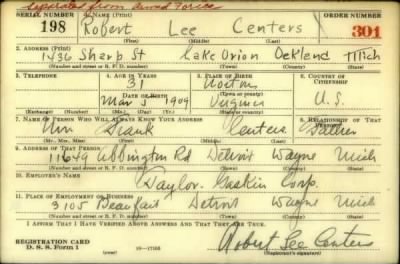 Separated from Armed Forces
SERIAL NUMBER 1. NAME (Print) ORDER NUMBER
198 Robert Lee Centers 301
(First) (Middle) (Last)
2. ADDRESS (Print)
1436 Sharp St Lake Orion Oakland Mich
(Number and street or R. F. D. number) (Town) (County) (State)
3. TELEPHONE 4. AGE IN YEARS 5. PLACE OF BIRTH 6. COUNTRY OF CITIZENSHIP
31 Norton
DATE OF BIRTH (Town or county)
Mar 5 1909 Virginia U.S.
(Exchange) (Number) (Mo.) (Day) (Yr.) (State or country)
7. NAME OF PERSON WHO WILL ALWAYS KNOW YOUR ADDRESS 8. RELATIONSHIP OF THAT PERSON
Mr. Frank Centers Father
(Mr., Mrs., Miss) (First) (Middle) (Last)
9. ADDRESS OF THAT PERSON
11649 Abbington Rd Detroit Wayne Mich
(Number and street or R. F. D. number) (Town) (County) (State)
10. EMPLOYER'S NAME
Taylor Gaskin Corp.
11. PLACE OF EMPLOYMENT OR BUSINESS
3105 Beaufait Detroit Wayne Mich
(Number and street or R. F. D. number) (Town) (County) (State)
I AFFIRM THAT I HAVE VERIFIED ABOVE ANSWERS AND THAT THEY ARE TRUE.
REGISTRATION CARD
D. S. S. Form 1 Robert Lee Centers
(Registrant's signature)